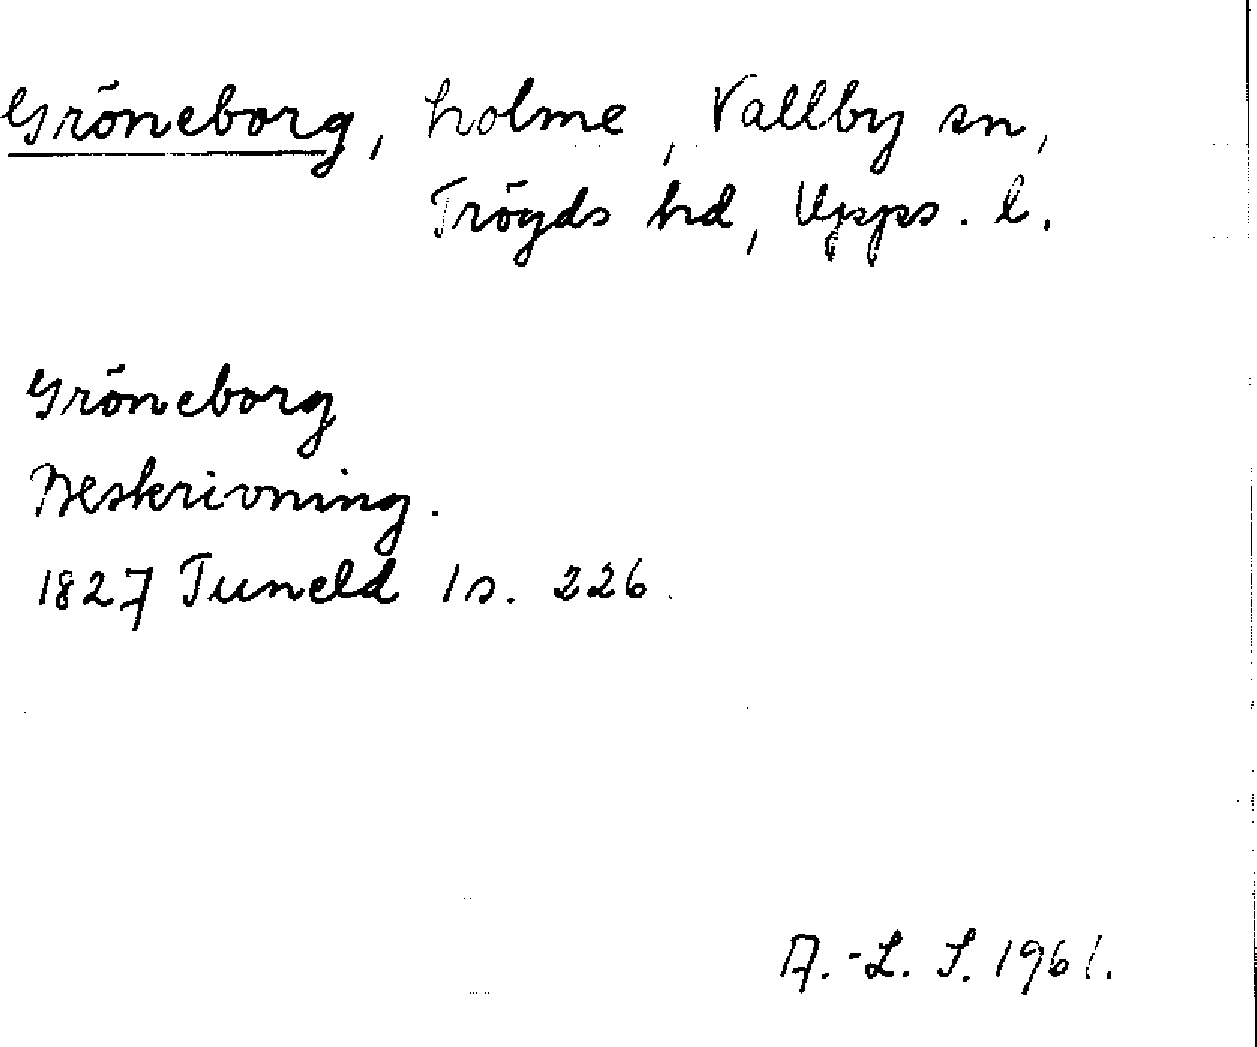 Gröneborg, holme, Vallby sn,
Trögds hd, Upps. l.
Gröneborg
Beskrivning.
1827 Tuneld 1 s. 226.
A.-L. S. 1961.